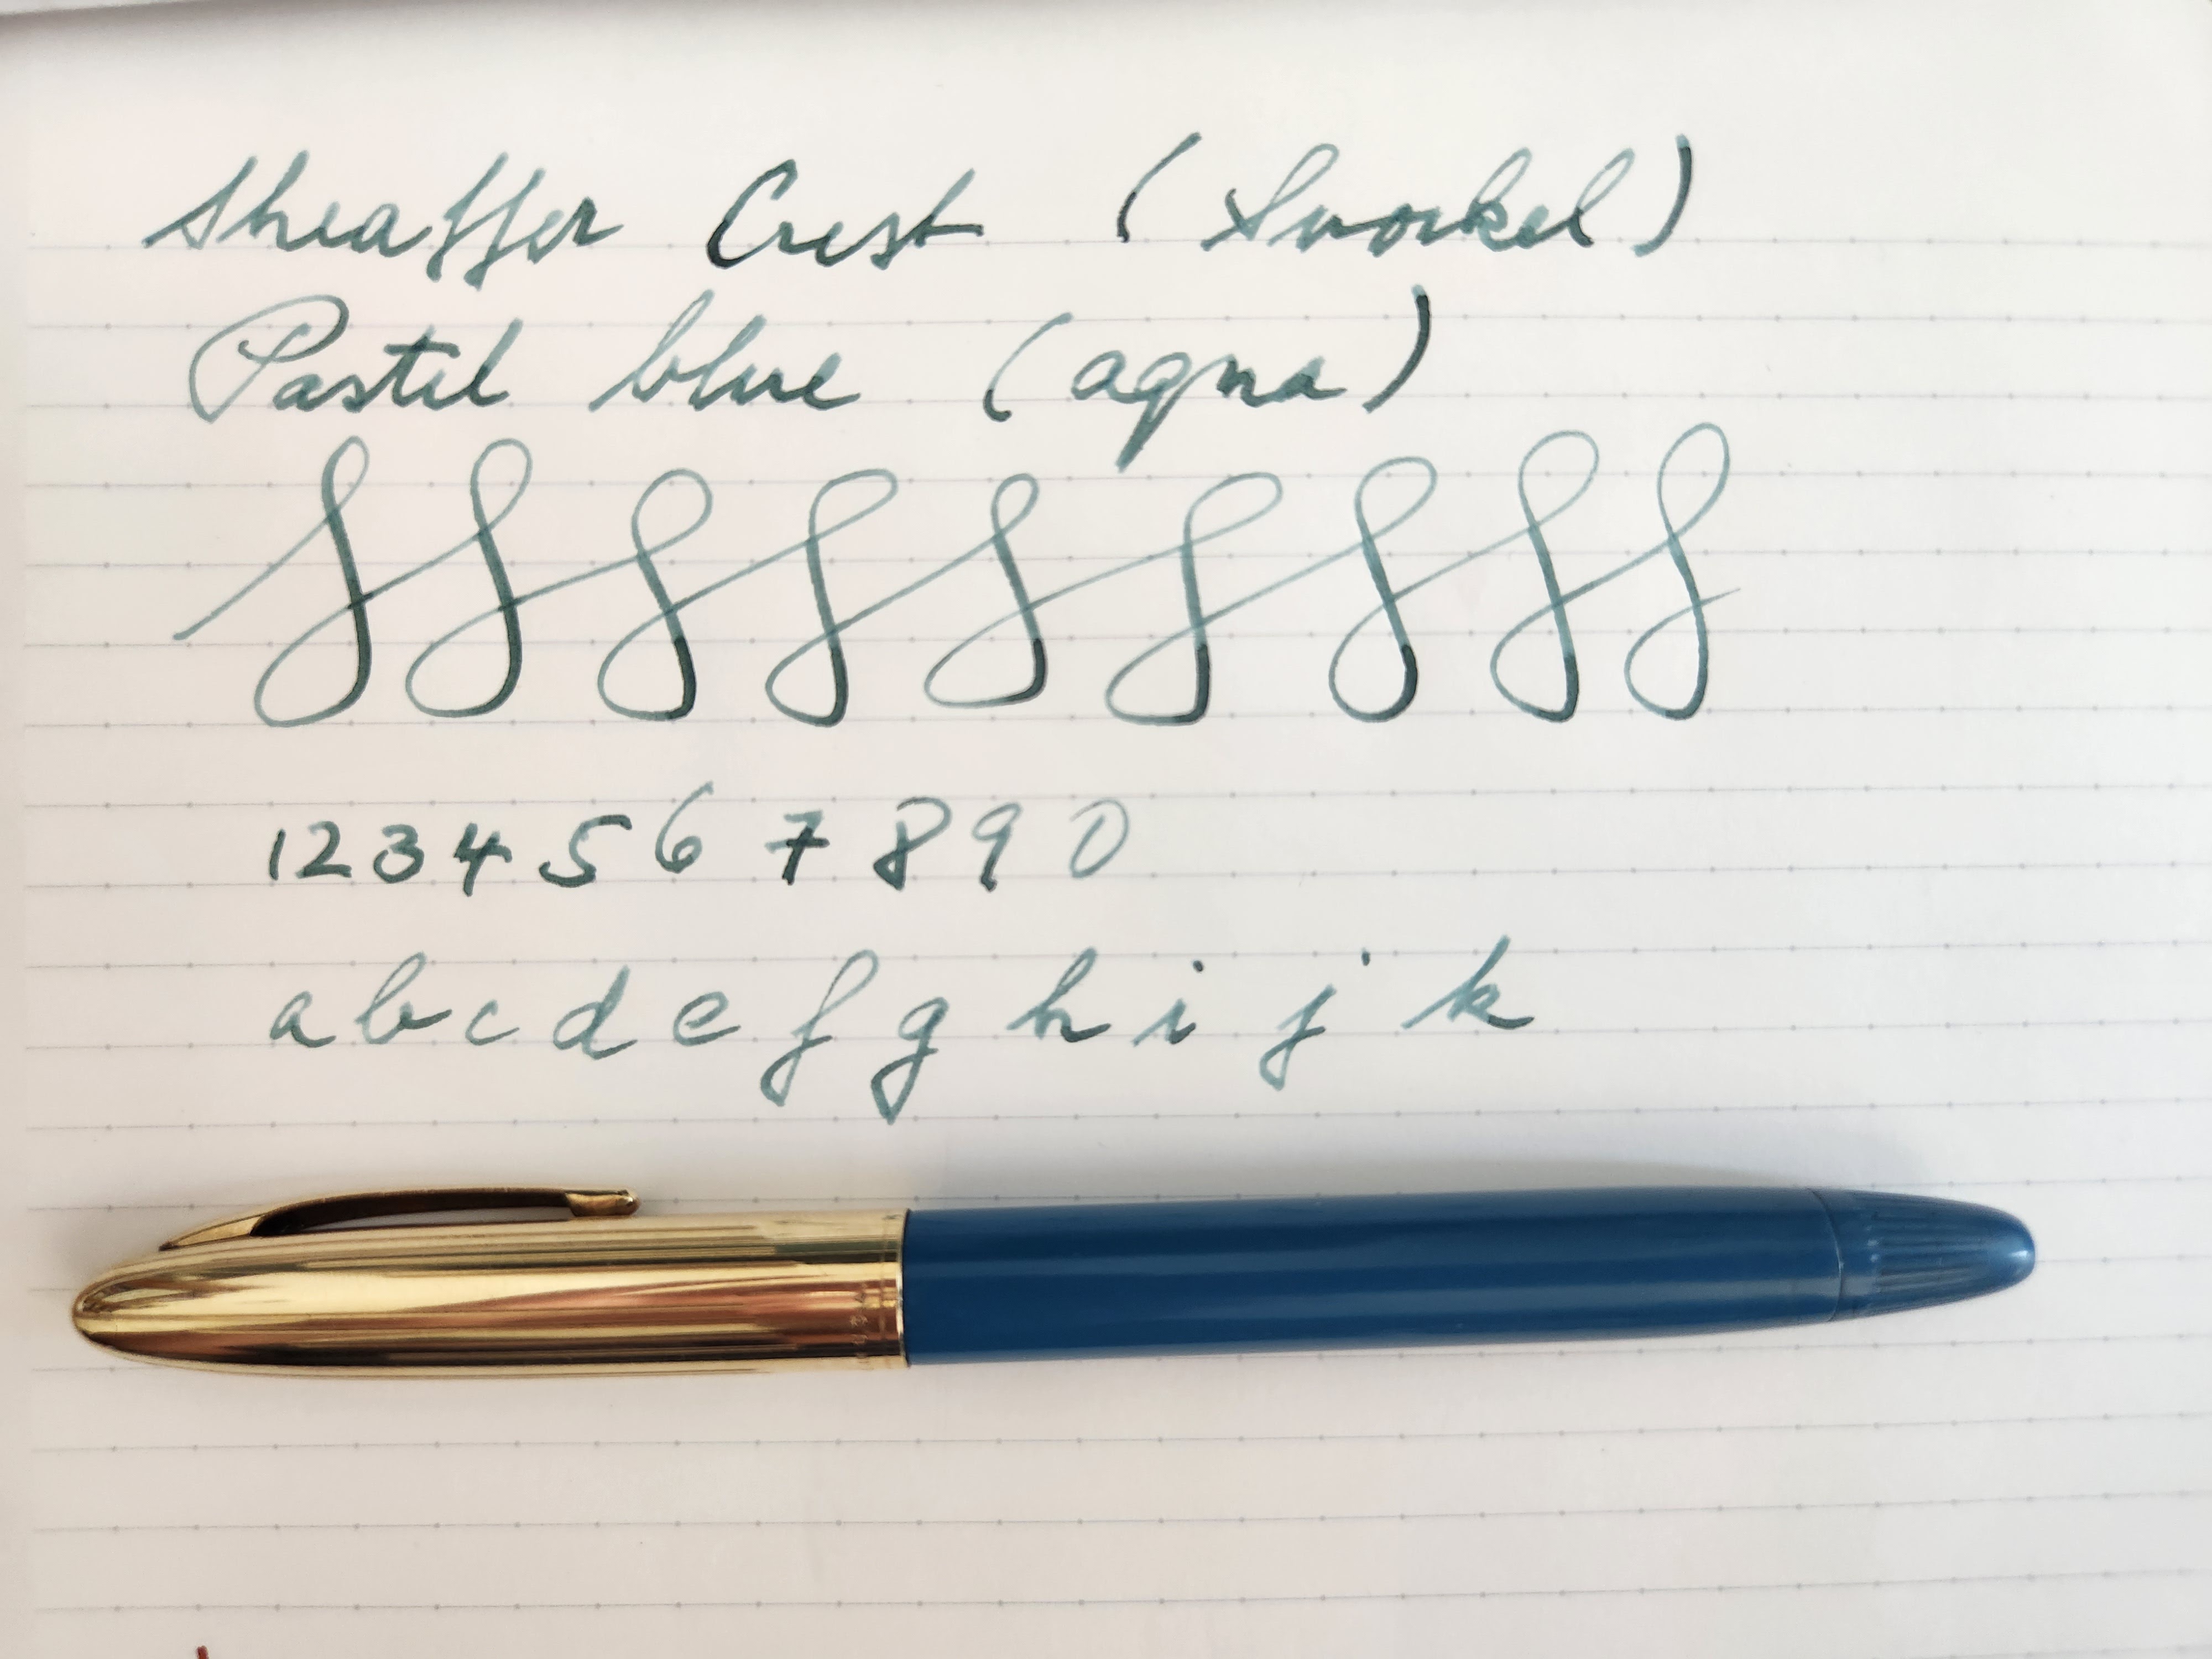 Sheaffer Crest (Snorkel)
Pastel blue (aqua)
1 2 3 4 5 6 7 8 9 0
a b c d e f g h i j k